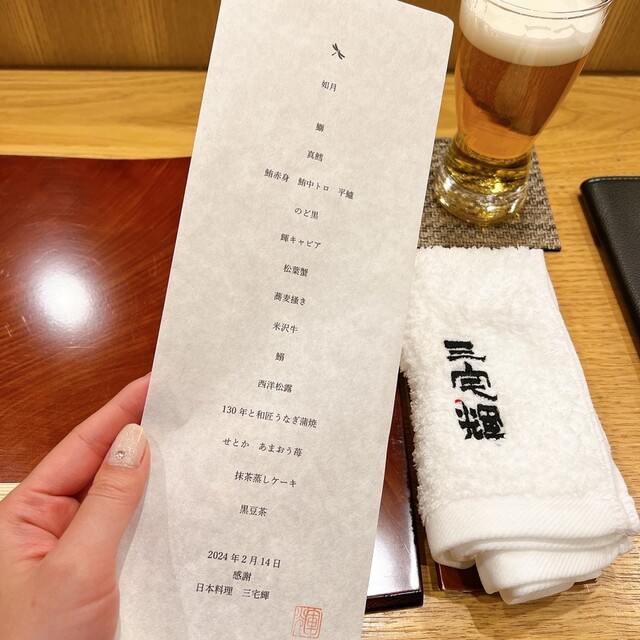 如月
鰤
真鱈
鮪赤身 鮪中トロ 平鱸
のど黒
輝キャビア
松葉蟹
蕎麦掻き
米沢牛
鰯
西洋松露
130年と和匠うなぎ蒲焼
せとか あまおう苺
抹茶蒸しケーキ
黒豆茶
2024年2月14日
感謝
日本料理 三宅輝
輝
三宅輝